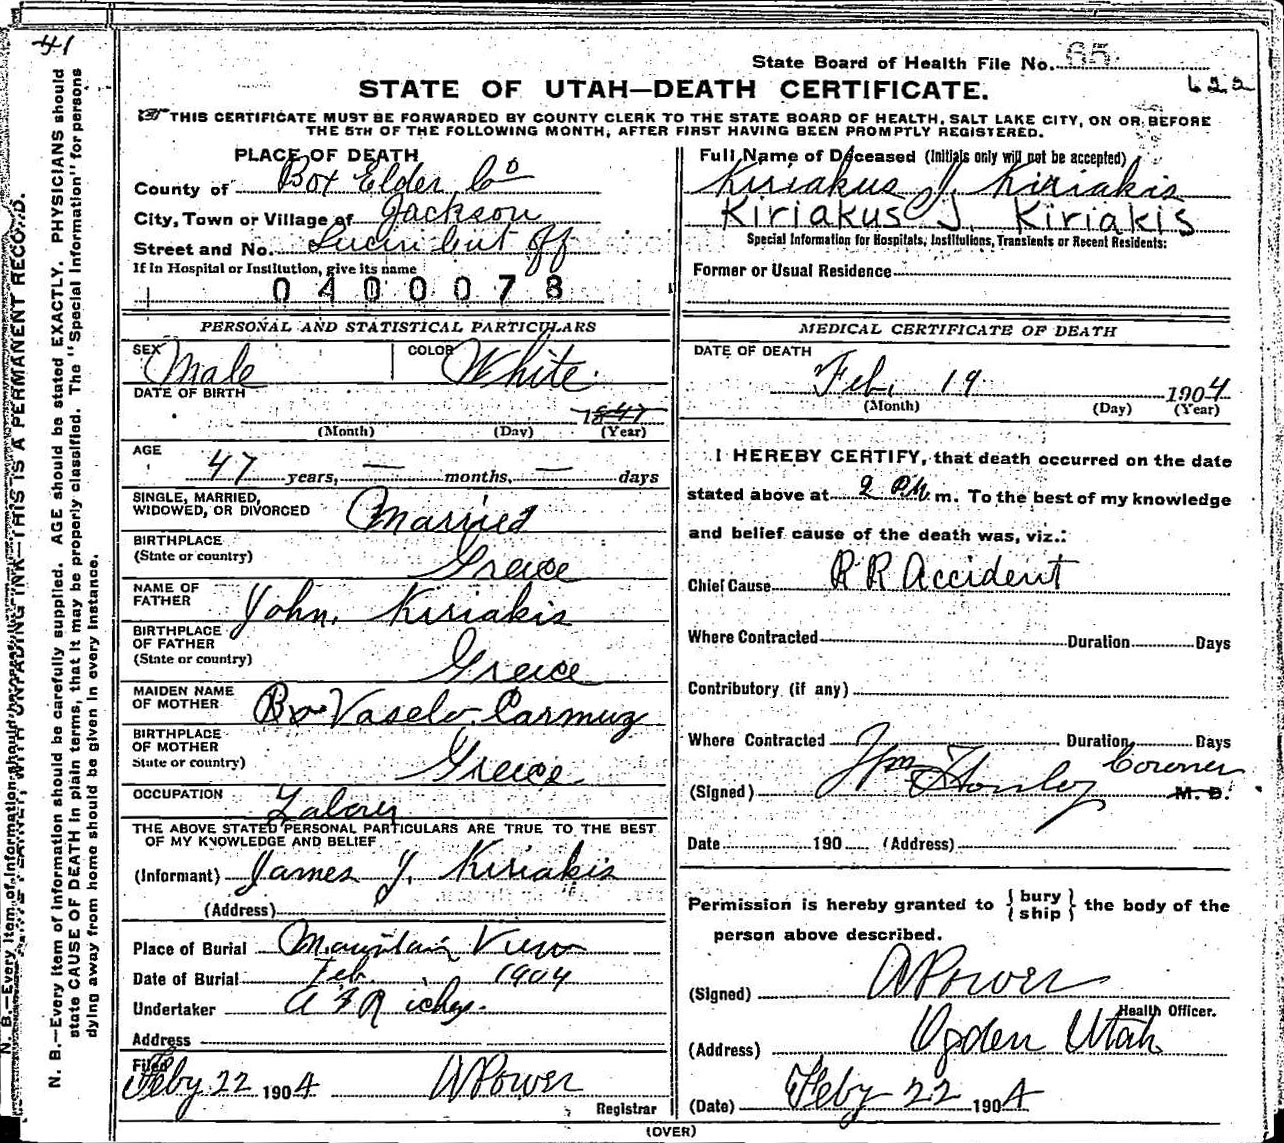 41
State Board of Health File No. 65
622
STATE OF UTAH—DEATH CERTIFICATE.
THIS CERTIFICATE MUST BE FORWARDED BY COUNTY CLERK TO THE STATE BOARD OF HEALTH, SALT LAKE CITY, ON OR BEFORE
THE 5TH OF THE FOLLOWING MONTH, AFTER FIRST HAVING BEEN PROMPTLY REGISTERED.
PLACE OF DEATH
County of Box Elder Co
City, Town or Village of Jackson
Street and No. Lucin Cut Off
If in Hospital or Institution, give its name
0400078
PERSONAL AND STATISTICAL PARTICULARS
SEX Male COLOR White
DATE OF BIRTH
1847
(Month) (Day) (Year)
AGE
47 years, — months, — days
SINGLE, MARRIED,
WIDOWED, OR DIVORCED Married
BIRTHPLACE
(State or country) Greece
NAME OF
FATHER John Kiriakis
BIRTHPLACE
OF FATHER
(State or country) Greece
MAIDEN NAME
OF MOTHER Vaselo Carmuz
BIRTHPLACE
OF MOTHER
State or country) Greece
OCCUPATION Labory
THE ABOVE STATED PERSONAL PARTICULARS ARE TRUE TO THE BEST
OF MY KNOWLEDGE AND BELIEF
(Informant) James J. Kiriakis
(Address)
Place of Burial Mountain View
Date of Burial Feb. 1904
Undertaker
Address
Filed
Feby 22 1904 A Power
Registrar
Full Name of Deceased (Initials only will not be accepted)
Kiriakus J. Kiriakis
Kiriakus J. Kiriakis
Special Information for Hospitals, Institutions, Transients or Recent Residents:
Former or Usual Residence
MEDICAL CERTIFICATE OF DEATH
DATE OF DEATH
Feb. 19 1904
(Month) (Day) (Year)
I HEREBY CERTIFY, that death occurred on the date
stated above at 2 P.M. m. To the best of my knowledge
and belief cause of the death was, viz.:
Chief Cause R R Accident
Where Contracted Duration Days
Contributory (if any)
Where Contracted Duration Days
(Signed) Wm Coroner M. D.
Date 190 (Address)
Permission is hereby granted to { bury
ship } the body of the
person above described.
(Signed) A Power
Health Officer.
(Address) Ogden Utah
(Date) Feby 22 1904
(OVER)
N. B.—Every item of information should be carefully supplied. AGE should be stated EXACTLY. PHYSICIANS should
state CAUSE OF DEATH in plain terms, that it may be properly classified. The "Special Information" for persons
dying away from home should be given in every instance.